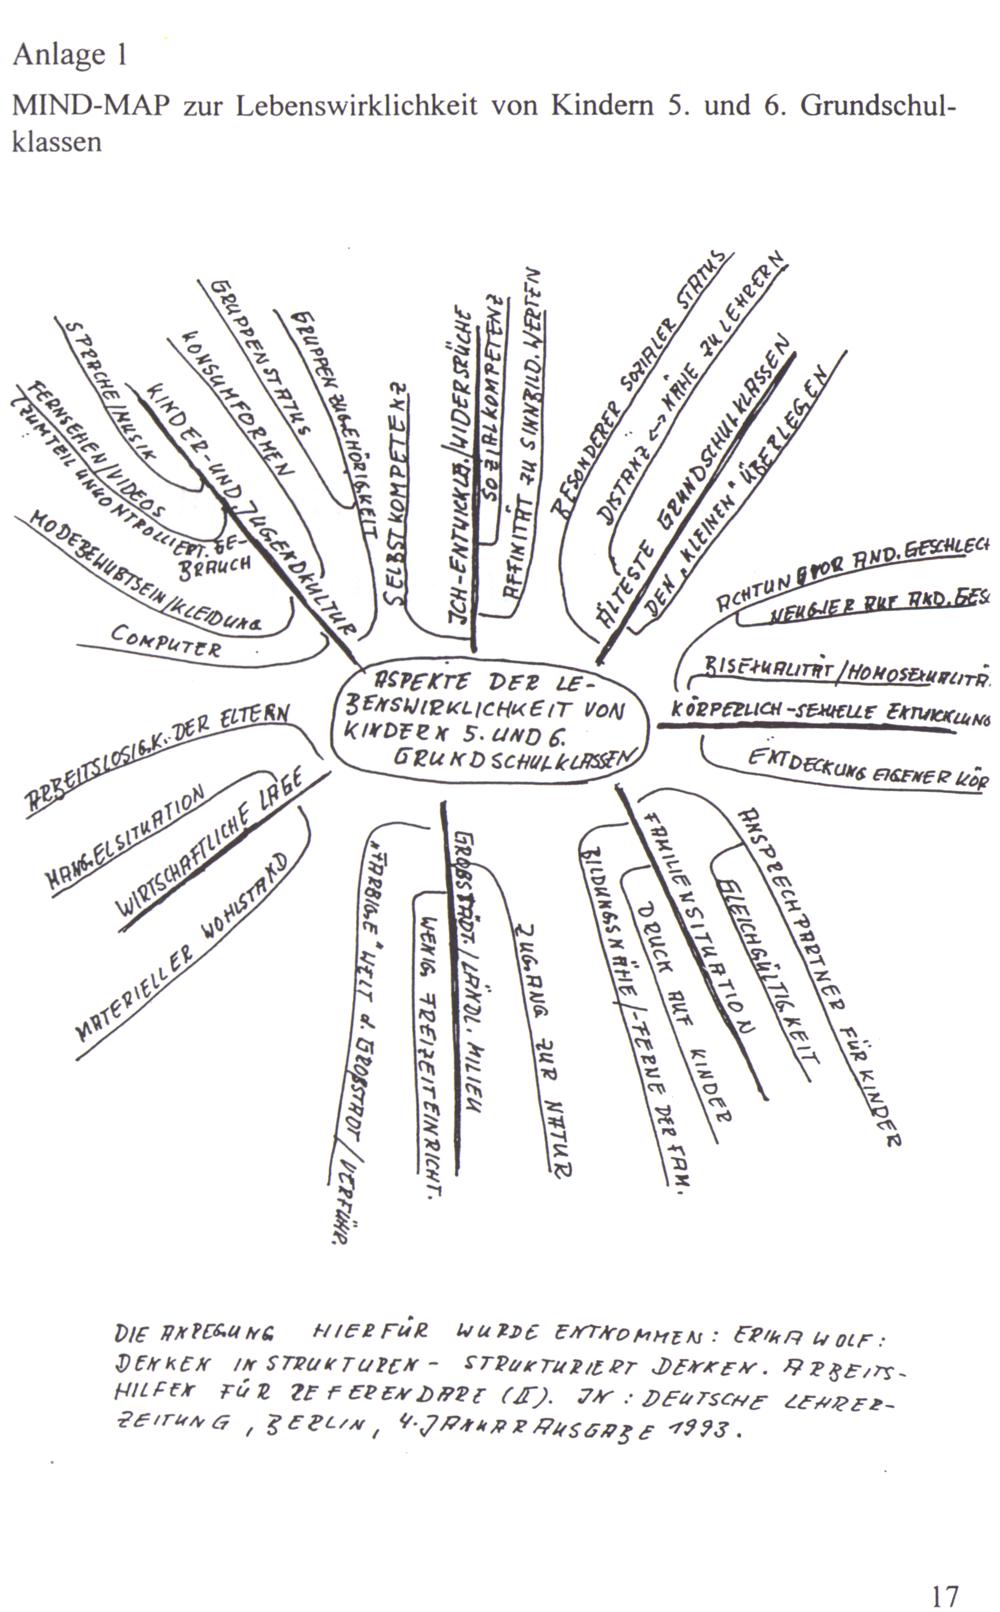 Anlage 1
MIND-MAP zur Lebenswirklichkeit von Kindern 5. und 6. Grundschul-
klassen
ASPEKTE DER LE-
BENSWIRKLICHKEIT VON
KINDERN 5. UND 6.
GRUNDSCHULKLASSEN
KINDER- UND JUGENDKULTUR
SPRACHE/MUSIK
FERNSEHEN/VIDEOS
(ZUM TEIL UNKONTROLLIERT. GE-
BRAUCH
MODEBEWUßTSEIN/KLEIDUNG
COMPUTER
KONSUMFORMEN
GRUPPENSTATUS
GRUPPENZUGEHÖRIGKEIT
ICH-ENTWICKLG./WIDERSPRÜCHE
SELBSTKOMPETENZ
SOZIALKOMPETENZ
AFFINITÄT ZU SINNBILD. WERTEN
ÄLTESTE GRUNDSCHULKLASSEN
BESONDERER SOZIALER STATUS
DISTANZ <-> NÄHE ZU LEHRERN
DEN „KLEINEN" ÜBERLEGEN
KÖRPERLICH-SEXUELLE ENTWICKLUNG
ACHTUNG VOR AND. GESCHLECH
NEUGIER AUF AND. GES
BISEXUALITÄT/HOMOSEXUALITÄ
ENTDECKUNG EIGENER KÖR
FAMILIENSITUATION
ANSPRECHPARTNER FÜR KINDER
GLEICHGÜLTIGKEIT
DRUCK AUF KINDER
BILDUNGSNÄHE/-FERNE DER FAM.
GROßSTÄDT./LÄNDL. MILIEU
ZUGANG ZUR NATUR
WENIG FREIZEITEINRICHT.
„FARBIGE" WELT d. GROßSTADT/VERFÜHR.
WIRTSCHAFTLICHE LAGE
ARBEITSLOSIGK. DER ELTERN
MANGELSITUATION
MATERIELLER WOHLSTAND
DIE ANREGUNG HIERFÜR WURDE ENTNOMMEN: ERIKA WOLF:
DENKEN IN STRUKTUREN - STRUKTURIERT DENKEN. ARBEITS-
HILFEN FÜR REFERENDARE (II). IN: DEUTSCHE LEHRER-
ZEITUNG, BERLIN, 4. JANUARAUSGABE 1993.
17